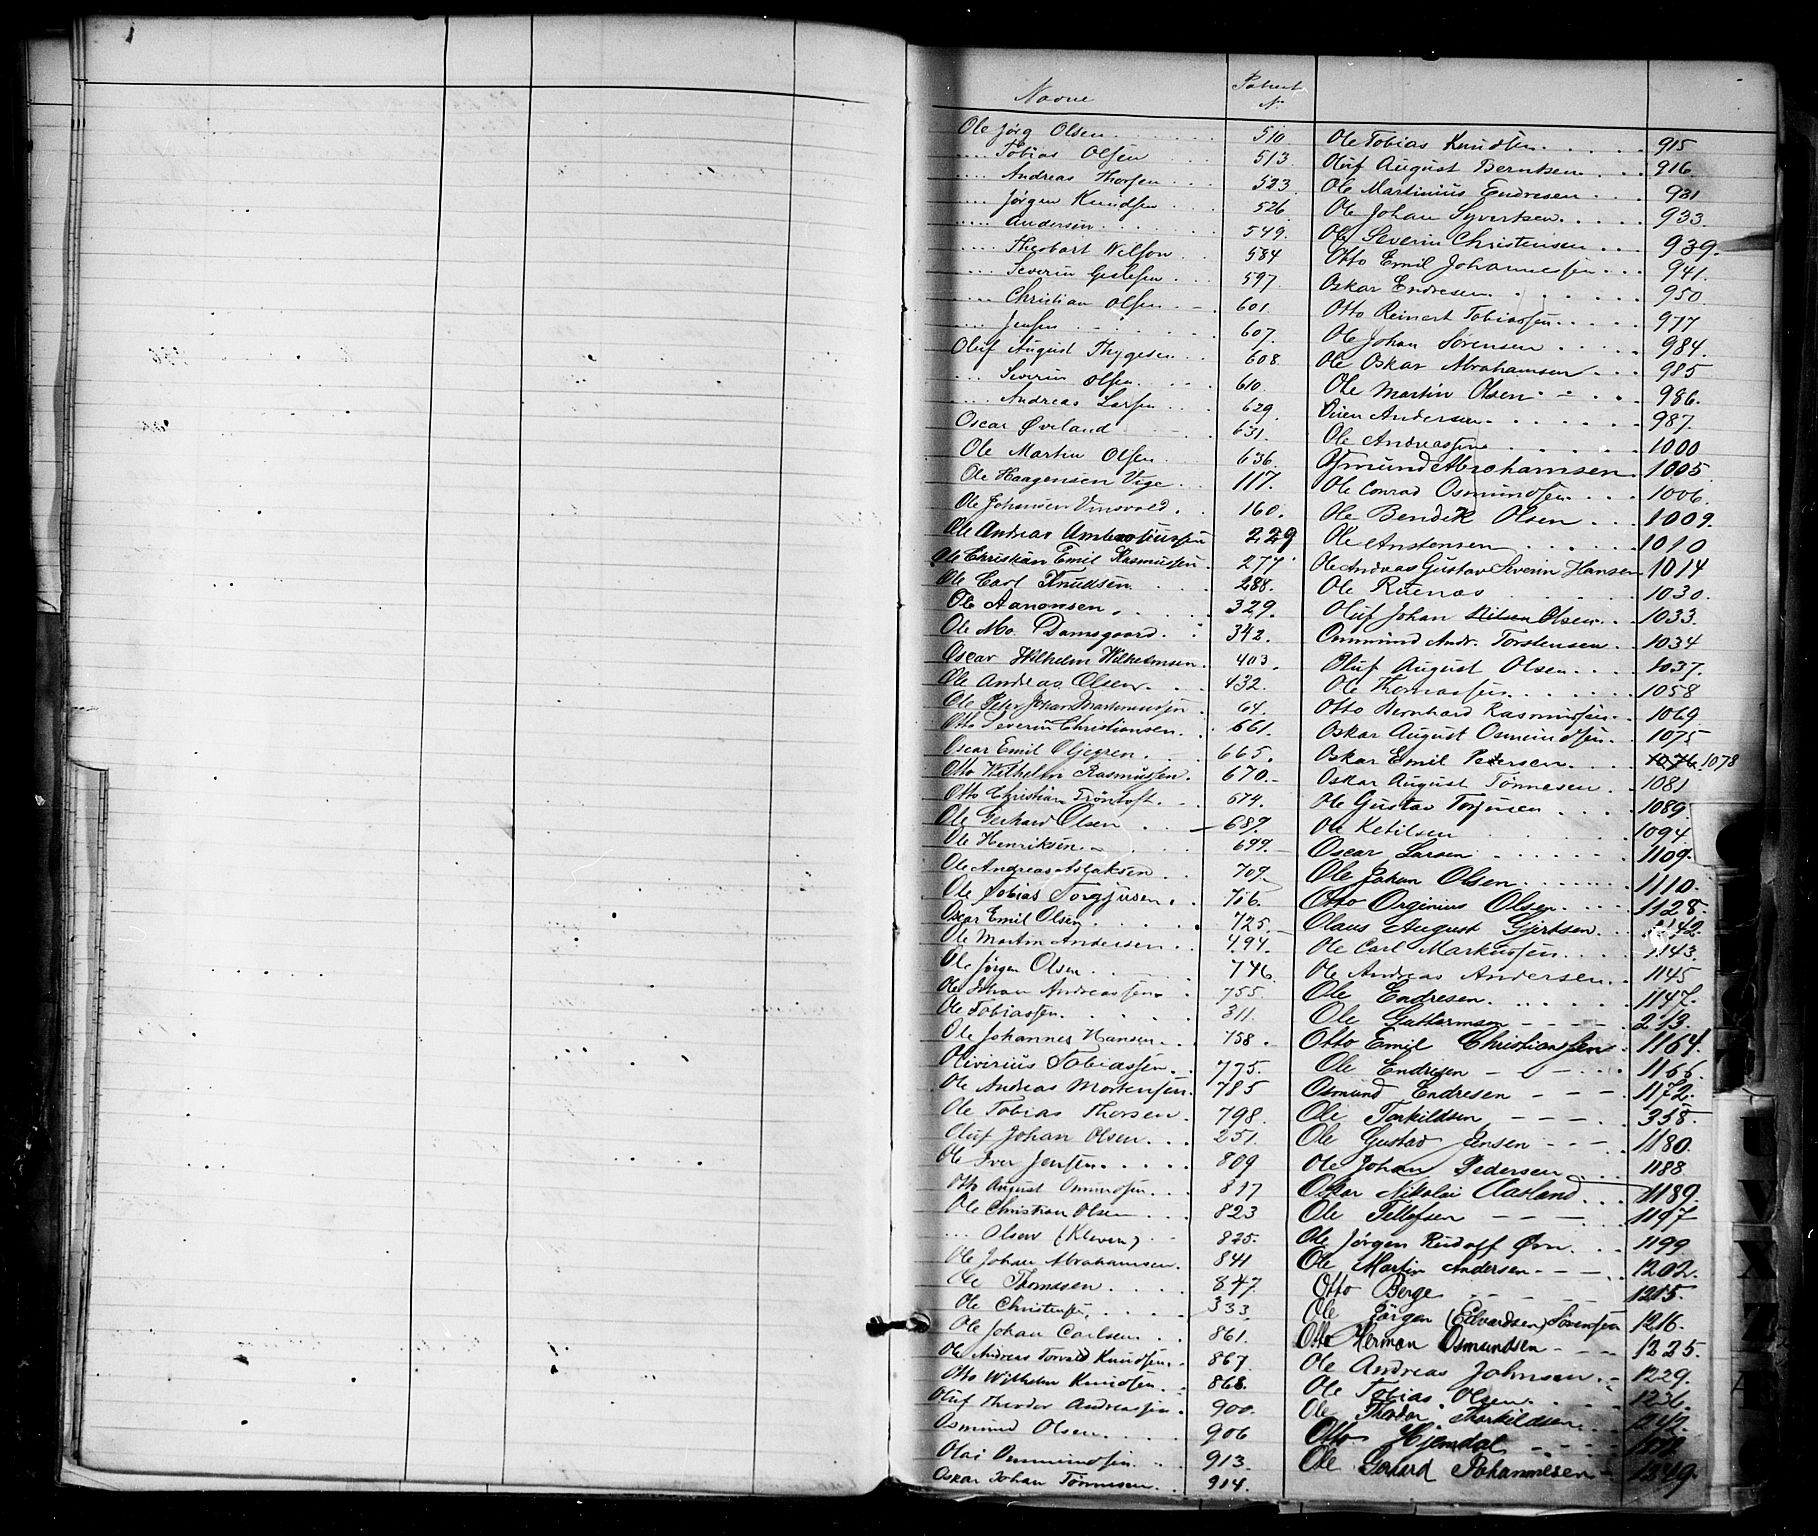 Navne
Patent
N.
Ole Jörg Olsen 510
Tobias Olsen 513
Andreas Thorsen 523
Jörgen Knudsen 526
Andersen 549
Theobart Wilson 584
Severin 597
Christian Olsen 601
Jensen 607
Oluf August Thygesen 608
Severin Olsen 610
Andreas Larsen 629
Oscar Øveland 631
Ole Martin Olsen 636
Ole Haagensen Vige 117
Ole Johansen 160
Ole Andreas Ambrosiussen 229
Ole Christian Emil Rasmussen 277
Ole Carl Knudsen 288
Ole Aanonsen 329
Ole Mo. Damsgaard 342
Oscar Wilhelm Wilhelmsen 403
Ole Andreas Olsen 432
Ole Peter Johan 64
Otto Severin Christiansen 661
Oscar Emil Oljegren 665
Otto Wilhelm Rasmussen 670
Otto Christian Tröntoft 674
Ole Gerhard Olsen 687
Ole Henriksen 699
Ole Andreas Aslaksen 709
Ole Tobias Torgjusen 716
Oscar Emil Olsen 725
Ole Martin Andersen 494
Ole Jörgen Olsen 746
Ole Johan Andreassen 755
Ole Tobiassen 311
Ole Johannes Hansen 758
Olivirius Tobiassen 775
Ole Andreas Mortensen 785
Ole Tobias Thorsen 798
Oluf Johan Olsen 251
Ole Iver Jensen 809
Otto August Omundsen 817
Ole Christian Olsen 823
Olsen (Kleven) 825
Ole Johan Abrahamsen 841
Ole Thomesen 847
Ole Christensen 333
Ole Johan Carlsen 861
Ole Andreas Torvald Knudsen 867
Otto Wilhelm Knudsen 868
Oluf Theodor Andreassen 900
Osmund Olsen 906
Olai Ommundsen 913
Oskar Johan Tönnesen 914
Ole Tobias Knudsen 915
Oluf August Berntsen 916
Ole Martinius Endresen 931
Ole Johan Syvertsen 933
Ole Severin Christensen 939
Otto Emil Johannessen 941
Oskar Endresen 950
Otto Reinert Tobiassen 977
Ole Johan Sörensen 984
Ole Oskar Abrahamsen 985
Ole Martin Olsen 986
Andersen 987
Ole Andreassen 1000
Osmund Abrahamsen 1005
Ole Conrad Osmundsen 1006
Ole Bendik Olsen 1009
Ole Anstensen 1010
Ole Andreas Gustav Severin Hansen 1014
Ole Ruenas 1030
Oluf Johan Nilsen Olsen 1033
Ommund Andr. Torstensen 1034
Oluf August Olsen 1037
Ole Thomassen 1058
Otto Bernhard Rasmussen 1069
Oskar August Osmundsen 1075
Oskar Emil Pedersen 1076 1078
Oskar August Tönnesen 1081
Ole Gustav Torjusen 1089
Ole Ketilsen 1094
Oscar Larsen 1109
Ole Johan Olsen 1110
Otto Orginius Olsen 1128
Olaus August Gjertsen 1142
Ole Carl Markussen 1143
Ole Andreas Andersen 1145
Ole Endresen 1147
Ole Guttormsen 213
Otto Emil Christianssen 1164
Ole Endresen 1166
Osmund Endresen 1172
Ole Torkildsen 358
Ole Gustav Jensen 1180
Ole Johan Pedersen 1188
Oskar Nikolai Aasland 1189
Ole Tellefsen 1197
Ole Jörgen Rudolf Örn 1199
Ole Martin Andersen 1202
Otto Berge 1215
Ole Jörgen (Edvardsen) Sörensen 1216
Otto Herman Osmundsen 1225
Ole Andreas Johnsen 1229
Ole Tobias Olsen
Ole Theodor Thorkildsen 1242
Otto Hjemdal
Ole Gerhard Johannesen 1349
U
V
X
Z